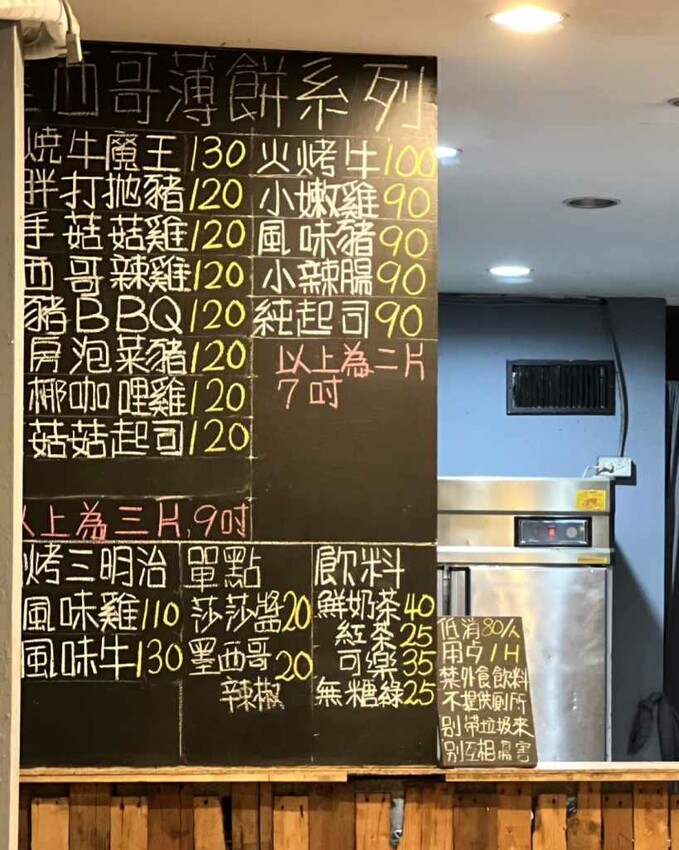 西哥薄餅系列
燒牛魔王130
胖打拋豬120
手菇菇雞120
西哥辣雞120
豬BBQ120
房泡菜豬120
椰咖哩雞120
菇菇起司120
以上為三片,9吋
火烤牛100
小嫩雞90
風味豬90
小辣腸90
純起司90
以上為二片
7吋
烤三明治
風味雞110
風味牛130
單點
莎莎醬20
墨西哥
辣椒20
飲料
鮮奶茶40
紅茶25
可樂35
無糖綠25
低消80/人
用点1H
禁外食飲料
不提供廁所
別帶垃圾來
別互相傷害